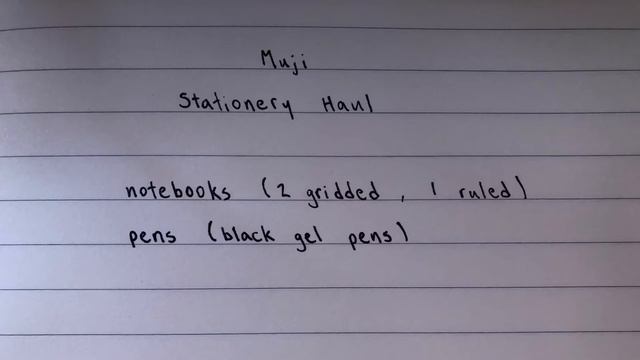 Muji
Stationery Haul
notebooks (2 gridded, 1 ruled)
pens (black gel pens)